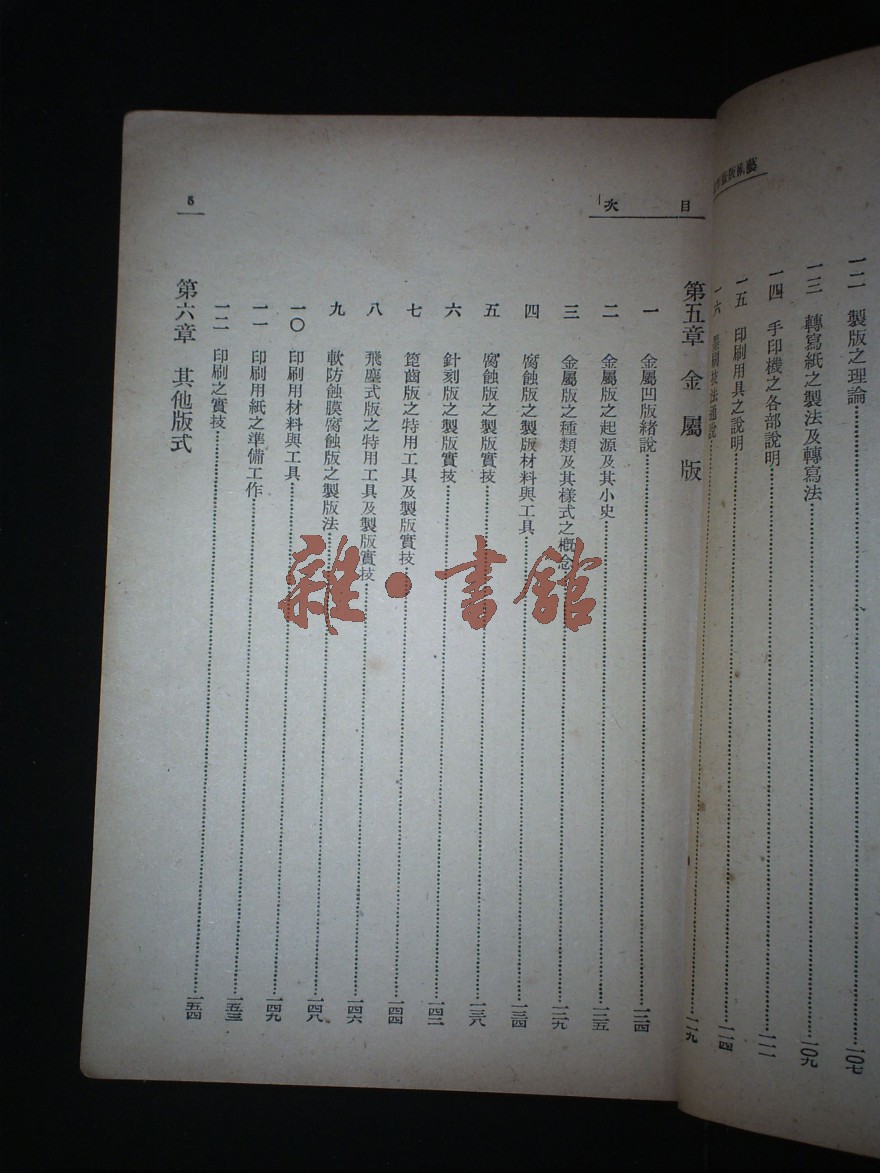 一二 製版之理論……一〇七
一三 轉寫紙之製法及轉寫法……一〇九
一四 手印機之各部說明……一一一
一五 印刷用具之說明……一一四
一六 刷技法通說……一一九
目次
5
第五章 金屬版
一 金屬凹版緒說……一二四
二 金屬版之起源及其小史……一二五
三 金屬版之種類及其樣式之概念……一二九
四 腐蝕版之製版材料與工具……一三四
五 腐蝕版之製版實技……一三八
六 針刻版之製版實技……一四二
七 箆齒版之特用工具及製版實技……一四四
八 飛塵式版之特用工具及製版實技……一四六
九 軟防蝕膜腐蝕版之製版法……一四八
一〇 印刷用材料與工具……一四九
一一 印刷用紙之準備工作……一五三
一二 印刷之實技……一五四
第六章 其他版式
雜·書館